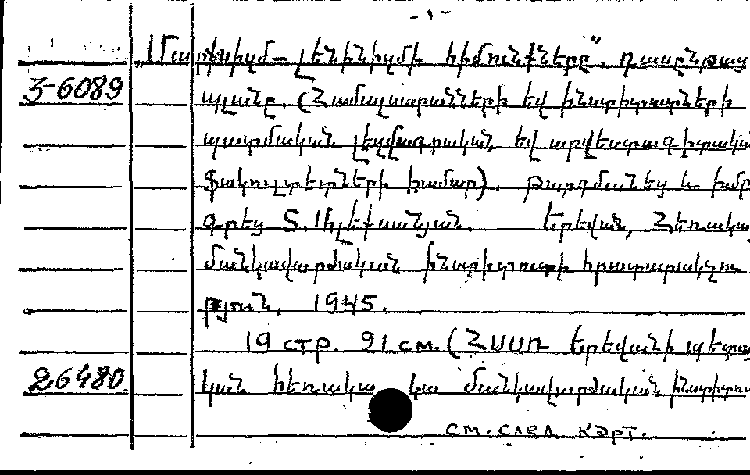 -1-
„Մարքսիզմ-լենինիզմի հիմունքները". դասընթաց
3-6089 պլանը. (Համալսարանների եվ ինստիտուտների
պատմական լեզվագրական եվ արվեստագիտական
ֆակուլտետների համար). Թարգմանեց և խմբ
գրեց Տ. Ալեքսանյան. Երեվան, Հեռակա
մանկավարժական ինստիտուտի հրատարակչու
թյուն, 1945.
19 стр. 21 см. (ՀՍՍՌ Երեվանի պետա
26480 կան հեռակա կա մանկավարժական ինստիտու
см. след. карт.